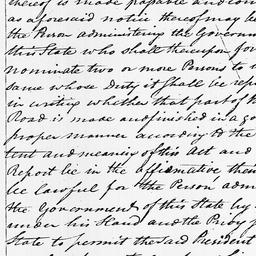 thereof is made payable and
as aforesaid notice thereof may be
the Person administering the Governm
this State who shall thereupon for
nominate two or more Persons to
same whose duty it shall be rep
in writing whether that part of th
Road is made and finished in a go
proper manner according to the
tent and meaning of this Act and
Report be in the affirmative then
be lawful for the Person adm
the Government of this State by
under his Hand and the Privy
State to permit the said President